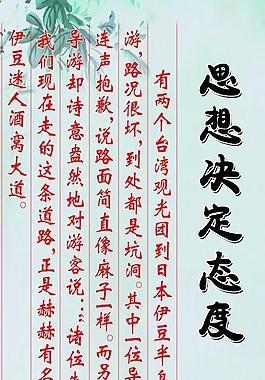 思想决定态度
有两个台湾观光团到日本伊豆半
游,路况很坏,到处都是坑洞。其中一位导
连声抱歉,说路面简直像麻子一样。而另
导游却诗意盎然地对游客说:…诸位先
我们现在走的这条道路,正是赫赫有名
伊豆迷人酒窝大道。